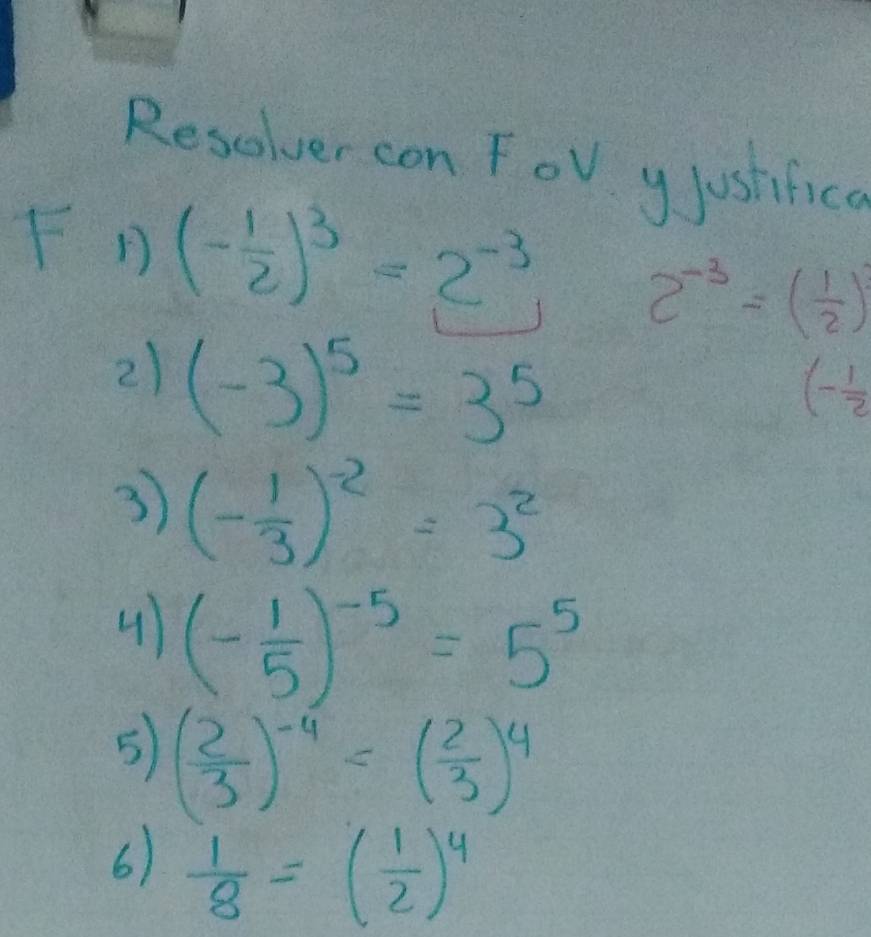 Resolver con F o V y justifica
F 1) (-1/2)^3 = 2^-3 2^-3 = (1/2)
(-1/2
2) (-3)^5 = 3^5
3) (-1/3)^-2 = 3^2
4) (-1/5)^-5 = 5^5
5) (2/3)^-4 = (2/3)^4
6) 1/8 = (1/2)^4